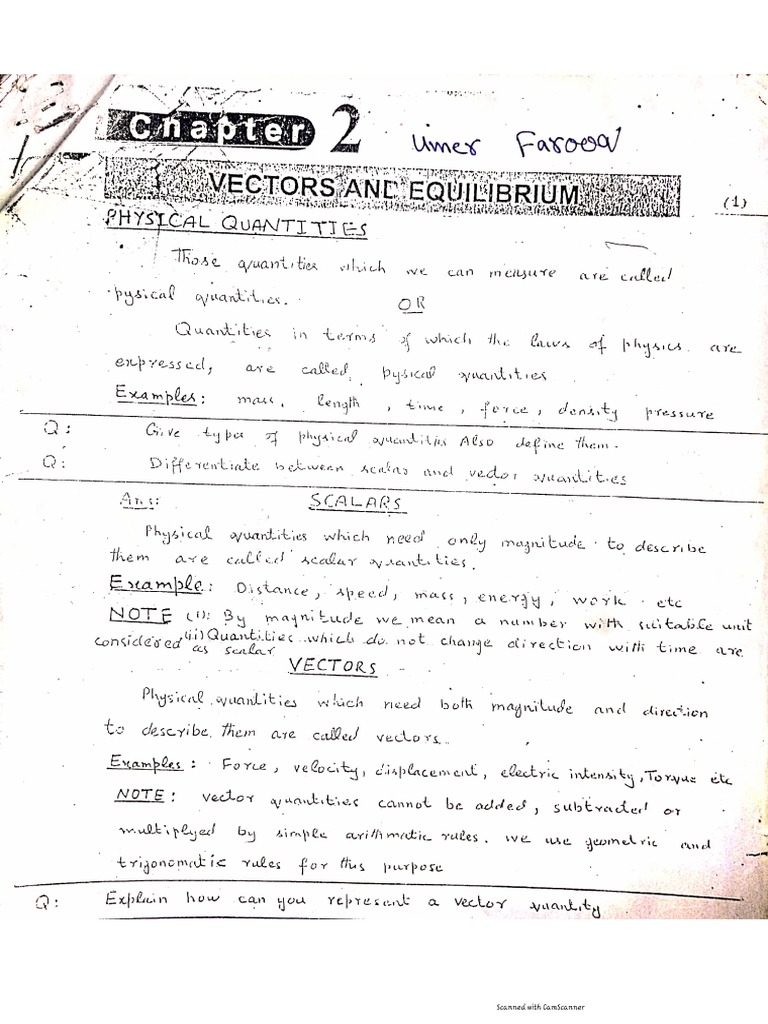 Chapter 2 Umer Farooq
VECTORS AND EQUILIBRIUM
(1)
PHYSICAL QUANTITIES
Those quantities which we can measure are called
pysical quantities. OR
Quantities in terms of which the laws of physics are
expressed, are called pysical quantities
Examples: mass, length, time, force, density pressure
Q: Give types of physical quantities Also define them.
Q: Differentiate between scalar and vector quantities
Ans: SCALARS
Physical quantities which need only magnitude to describe
them are called scalar quantities.
Example: Distance, speed, mass, energy, work etc
NOTE (i): By magnitude we mean a number with suitable unit
(ii) Quantities which do not change direction with time are
considered as scalar
VECTORS
Physical quantities which need both magnitude and direction
to describe them are called vectors.
Examples: Force, velocity, displacement, electric intensity, Torque etc
NOTE: vector quantities cannot be added, subtracted or
multiplyed by simple arithmatic rules. we use geometric and
trigonomatic rules for this purpose
Q: Explain how can you represent a vector quantity
Scanned with CamScanner